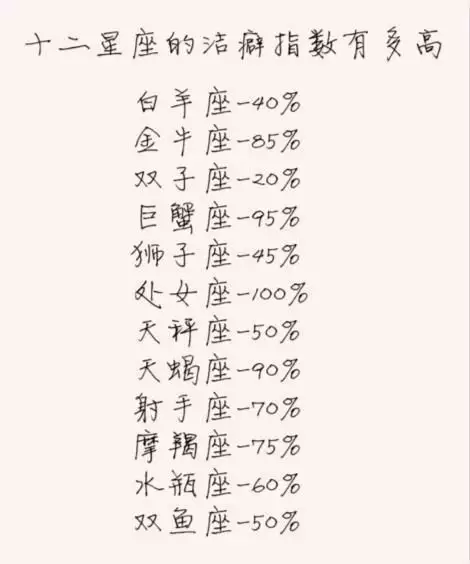 十二星座的洁癖指数有多高
白羊座-40%
金牛座-85%
双子座-20%
巨蟹座-95%
狮子座-45%
处女座-100%
天秤座-50%
天蝎座-90%
射手座-70%
摩羯座-75%
水瓶座-60%
双鱼座-50%